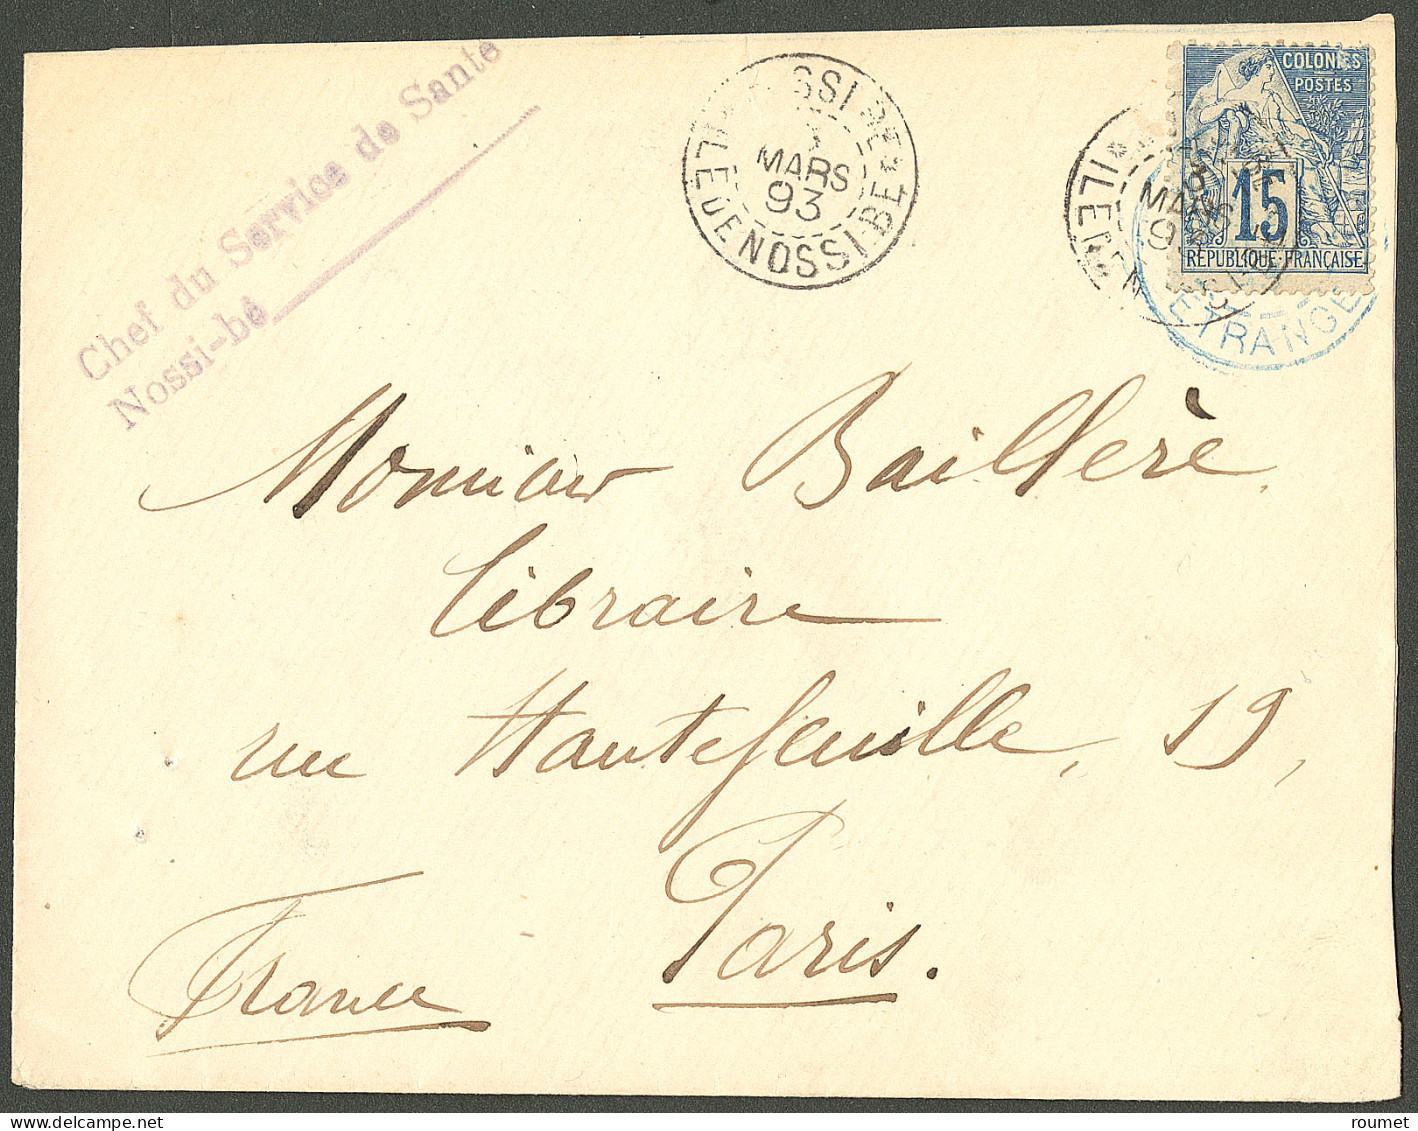 Chef du Service de Santé
Nossi-bé
NOSSI BE
MARS
93
ILE DE NOSSI-BÉ
COLONIES
POSTES
15
RÉPUBLIQUE FRANÇAISE
MARS
ETRANGE
Monsieur Baillère
Libraire
rue Hautefeuille, 19,
Paris.
France
roumet